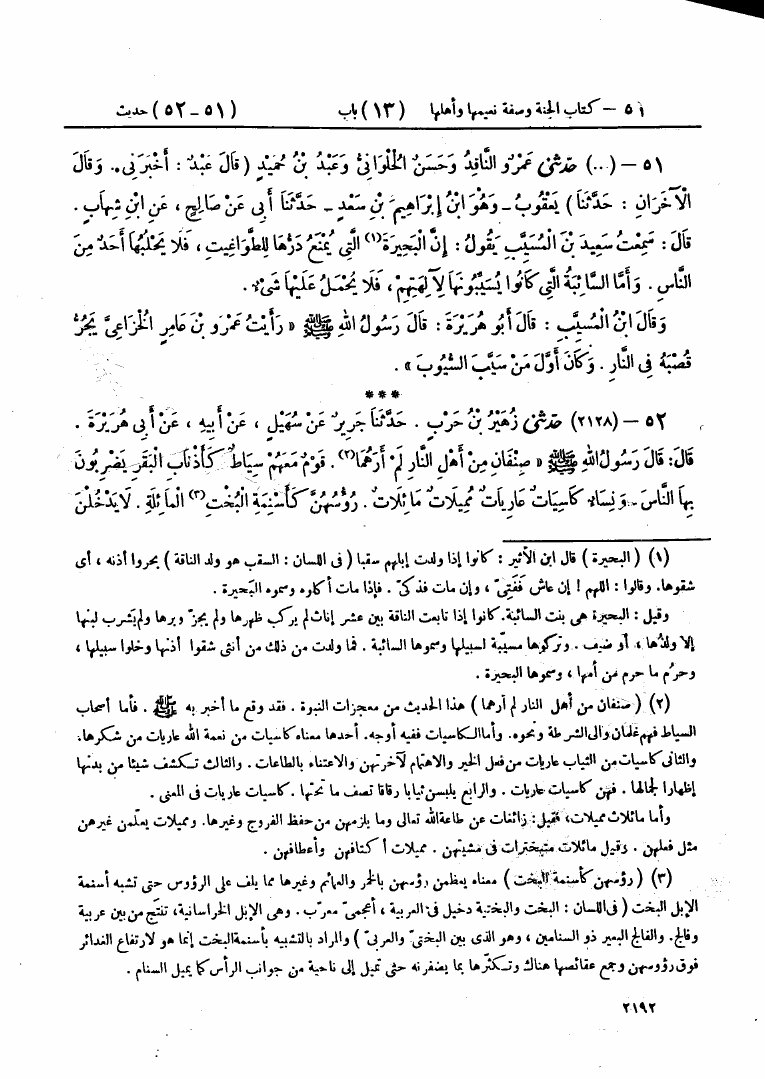 ٥١ – كتاب الجنة وصفة نعيمها وأهلها (١٣) باب (٥١-٥٢) حديث
٥١ – (...) حَدَّثَنِي عَمْرٌو النَّاقِدُ وَحَسَنٌ الْحُلْوَانِيُّ وَعَبْدُ بْنُ حُمَيْدٍ ( قَالَ عَبْدٌ : أَخْبَرَنِي . وَقَالَ
الْآخَرَانِ : حَدَّثَنَا ) يَعْقُوبُ – وَهُوَ ابْنُ إِبْرَاهِيمَ بْنِ سَعْدٍ – حَدَّثَنَا أَبِي عَنْ صَالِحٍ ، عَنِ ابْنِ شِهَابٍ .
قَالَ : سَمِعْتُ سَعِيدَ بْنَ الْمُسَيَّبِ يَقُولُ : إِنَّ الْبَحِيرَةَ (١) الَّتِي يُمْنَعُ دَرُّهَا لِلطَّوَاغِيتِ ، فَلَا يَحْلُبُهَا أَحَدٌ مِنَ
النَّاسِ . وَأَمَّا السَّائِبَةُ الَّتِي كَانُوا يُسَيِّبُونَهَا لِآلِهَتِهِمْ ، فَلَا يُحْمَلُ عَلَيْهَا شَيْءٌ .
وَقَالَ ابْنُ الْمُسَيَّبِ : قَالَ أَبُو هُرَيْرَةَ : قَالَ رَسُولُ اللهِ ﷺ « رَأَيْتُ عَمْرَو بْنَ عَامِرٍ الْخُزَاعِيَّ يَجُرُّ
قُصْبَهُ فِي النَّارِ . وَكَانَ أَوَّلَ مَنْ سَيَّبَ السُّيُوبَ » .
***
٥٢ – (٢١٢٨) حَدَّثَنِي زُهَيْرُ بْنُ حَرْبٍ . حَدَّثَنَا جَرِيرٌ عَنْ سُهَيْلٍ ، عَنْ أَبِيهِ ، عَنْ أَبِي هُرَيْرَةَ .
قَالَ : قَالَ رَسُولُ اللهِ ﷺ « صِنْفَانِ مِنْ أَهْلِ النَّارِ لَمْ أَرَهُمَا (٢) . قَوْمٌ مَعَهُمْ سِيَاطٌ كَأَذْنَابِ الْبَقَرِ يَضْرِبُونَ
بِهَا النَّاسَ – وَنِسَاءٌ كَاسِيَاتٌ عَارِيَاتٌ مُمِيلَاتٌ مَائِلَاتٌ . رُؤُسُهُنَّ كَأَسْنِمَةِ الْبُخْتِ (٣) الْمَائِلَةِ . لَا يَدْخُلْنَ
(١) ( البحيرة ) قال ابن الأثير : كانوا إذا ولدت إبلهم سقبا ( فى اللسان : السقب هو ولد الناقة ) بحروا أذنه ، أى
شقوها. وقالوا : اللهم ! إن عاش ففتىّ ، وإن مات فذكىّ . فإذا مات أكلوه وسموه البَحيرة .
وقيل : البحيرة هى بنت السائبة. كانوا إذا تابعت الناقة بين عشر إناث لم يركب ظهرها ولم يجزّ وبرها ولم يَشرب لبنها
إلا ولدُها ، أو ضيف . وتركوها مسيّبة لسبيلها وسموها السائبة . فما ولدت من ذلك من أنثى شقوا أذنها وخلوا سبيلها ،
وحرُم ما حرم من أمها ، وسموها البحيرة .
(٢) ( صنفان من أهل النار لم أرهما ) هذا الحديث من معجزات النبوة . فقد وقع ما أخبر به ﷺ . فأما أصحاب
السياط فهم غلمان والى الشرطة ونحوه. وأما الكاسيات ففيه أوجه. أحدها معناه كاسيات من نعمة الله عاريات من شكرها.
والثانى كاسيات من الثياب عاريات من فعل الخير والاهتمام لآخرتهن والاعتناء بالطاعات . والثالث تكشف شيئا من بدنها
إظهارا لجمالها . فهن كاسيات عاريات . والرابع يلبسن ثيابا رقاقا تصف ما تحتها . كاسيات عاريات فى المعنى .
وأما مائلات مميلات، فقيل: زائغات عن طاعة الله تعالى وما يلزمهن من حفظ الفروج وغيرها. ومميلات يعلّمن غيرهن
مثل فعلهن . وقيل مائلات متبخترات فى مشيتهن . مميلات أكتافهن وأعطافهن .
(٣) ( رؤسهن كأسنمة البخت ) معناه يعظمن رؤسهن بالخمر والعمائم وغيرها مما يلف على الرؤوس حتى تشبه أسنمة
الإبل البخت ( فى اللسان : البخت والبختية دخيل فى العربية ، أعجمىّ معرّب . وهى الإبل الخراسانية، تنتَج من بين عربية
وفالج. والفالج البعير ذو السنامين ، وهو الذى بين البختىّ والعربىّ ) والمراد بالتشبيه بأسنمة البخت إنما هو لارتفاع الغدائر
فوق رؤوسهن وجمع عقائصها هناك وتكثّرها بما يضفرنه حتى تميل إلى ناحية من جوانب الرأس كما يميل السنام .
٢١٩٢